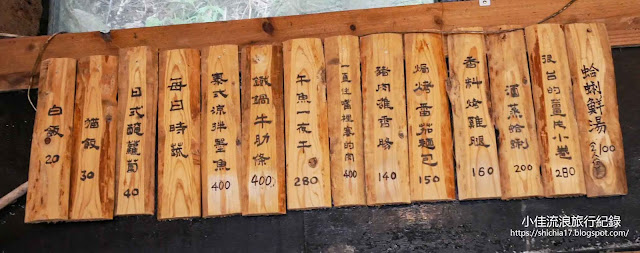 蛤蜊鮮湯
100
很台的薑片小卷
280
酒蒸蛤蜊
200
香料烤雞腿
160
焗烤番茄麵包
150
豬肉香腸
140
一直往嘴裡塞的肉
400
午魚一夜干
280
鐵鍋牛肋條
400
泰式涼拌墨魚
400
每日時蔬
日式醃蘿蔔
40
貓飯
30
白飯
20
小佳流浪旅行紀錄
https://shichia17.blogspot.com/